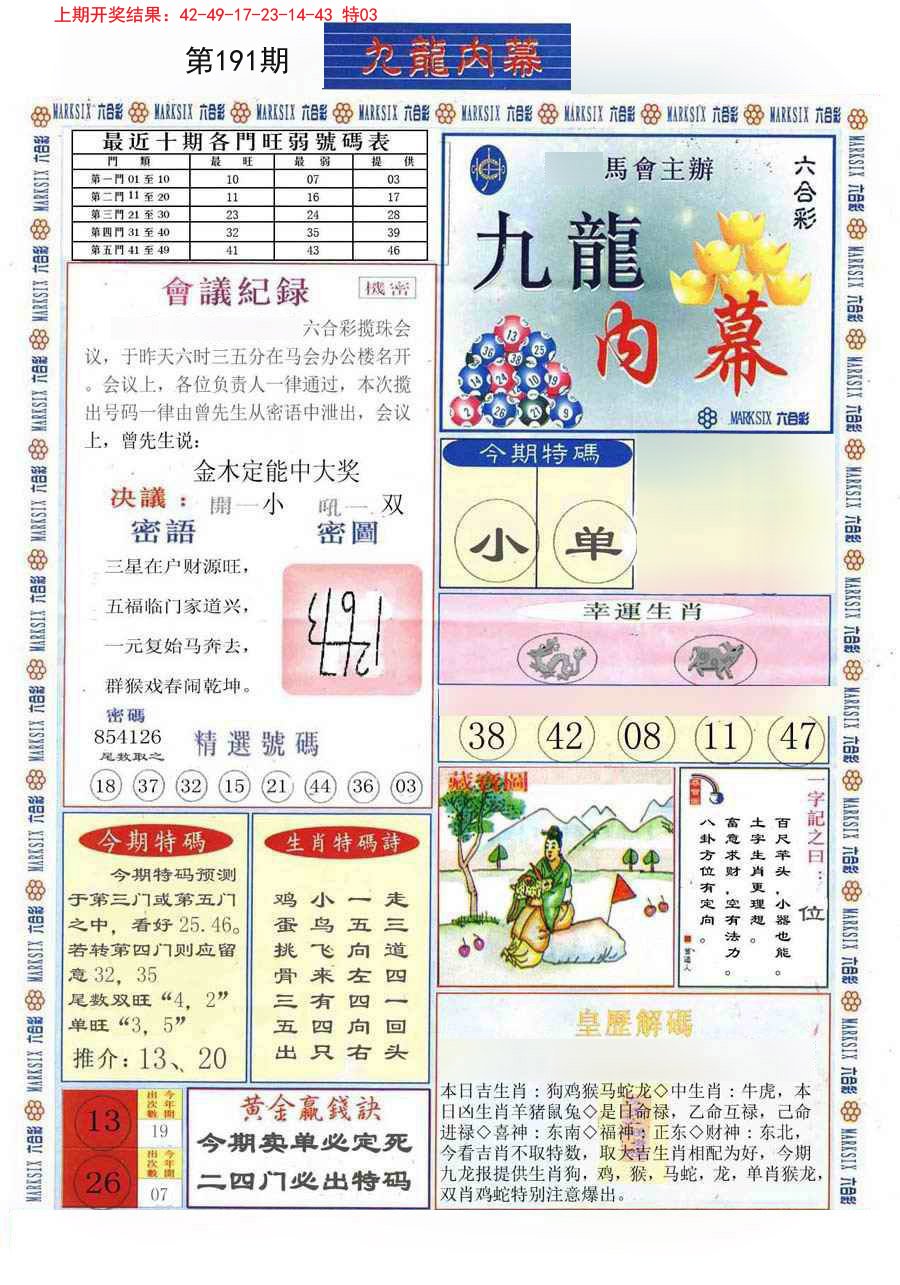 上期开奖结果：42-49-17-23-14-43 特03
第191期
九龍内幕
MARKSIX 六合彩 MARKSIX 六合彩 MARKSIX 六合彩 MARKSIX 六合彩 MARKSIX 六合彩 MARKSIX 六合彩 MARKSIX 六合彩 MARKSIX 六合彩
最近十期各門旺弱號碼表
門 類 最 旺 最 弱 提 供
第一門 01 至 10 10 07 03
第二門 11 至 20 11 16 17
第三門 21 至 30 23 24 28
第四門 31 至 40 32 35 39
第五門 41 至 49 41 43 46
馬會主辦
六合彩
九龍
内幕
13
36 38 25
14 24 10 19
2 26 21 9
MARKSIX 六合彩
會議紀録
機密
六合彩揽珠会
议，于昨天六时三五分在马会办公楼名开
。会议上，各位负责人一律通过，本次揽
出号码一律由曾先生从密语中泄出，会议
上，曾先生说：
金木定能中大奖
决議：開一小 吼一双
密語 密圖
三星在户财源旺，
五福临门家道兴，
一元复始马奔去，
群猴戏春闹乾坤。
密碼
854126
尾数取之
精選號碼
18 37 32 15 21 44 36 03
今期特碼
小 单
幸運生肖
38 42 08 11 47
藏寶圖
一字記之曰：位
百尺竿头，小器也能。
土字生肖更理想。
富意求财，空有法力。
八卦方位有定向。
曾道人
今期特碼
今期特码预测
于第三门或第五门
之中，看好25.46。
若转第四门则应留
意32，35
尾数双旺“4，2”
单旺“3，5”
推介：13、20
生肖特碼詩
鸡小一走
蛋鸟五三
挑飞向道
骨来左四
三有四一
五四向回
出只右头
13
今年開出次數
19
26
今年開出次數
07
黄金贏錢訣
今期卖单必定死
二四门必出特码
皇歷解碼
本日吉生肖：狗鸡猴马蛇龙◇中生肖：牛虎，本
日凶生肖羊猪鼠兔◇是日命禄，乙命互禄，己命
进禄◇喜神：东南◇福神：正东◇财神：东北，
今看吉肖不取特数，取大吉生肖相配为好，今期
九龙报提供生肖狗，鸡，猴，马蛇，龙，单肖猴龙，
双肖鸡蛇特别注意爆出。